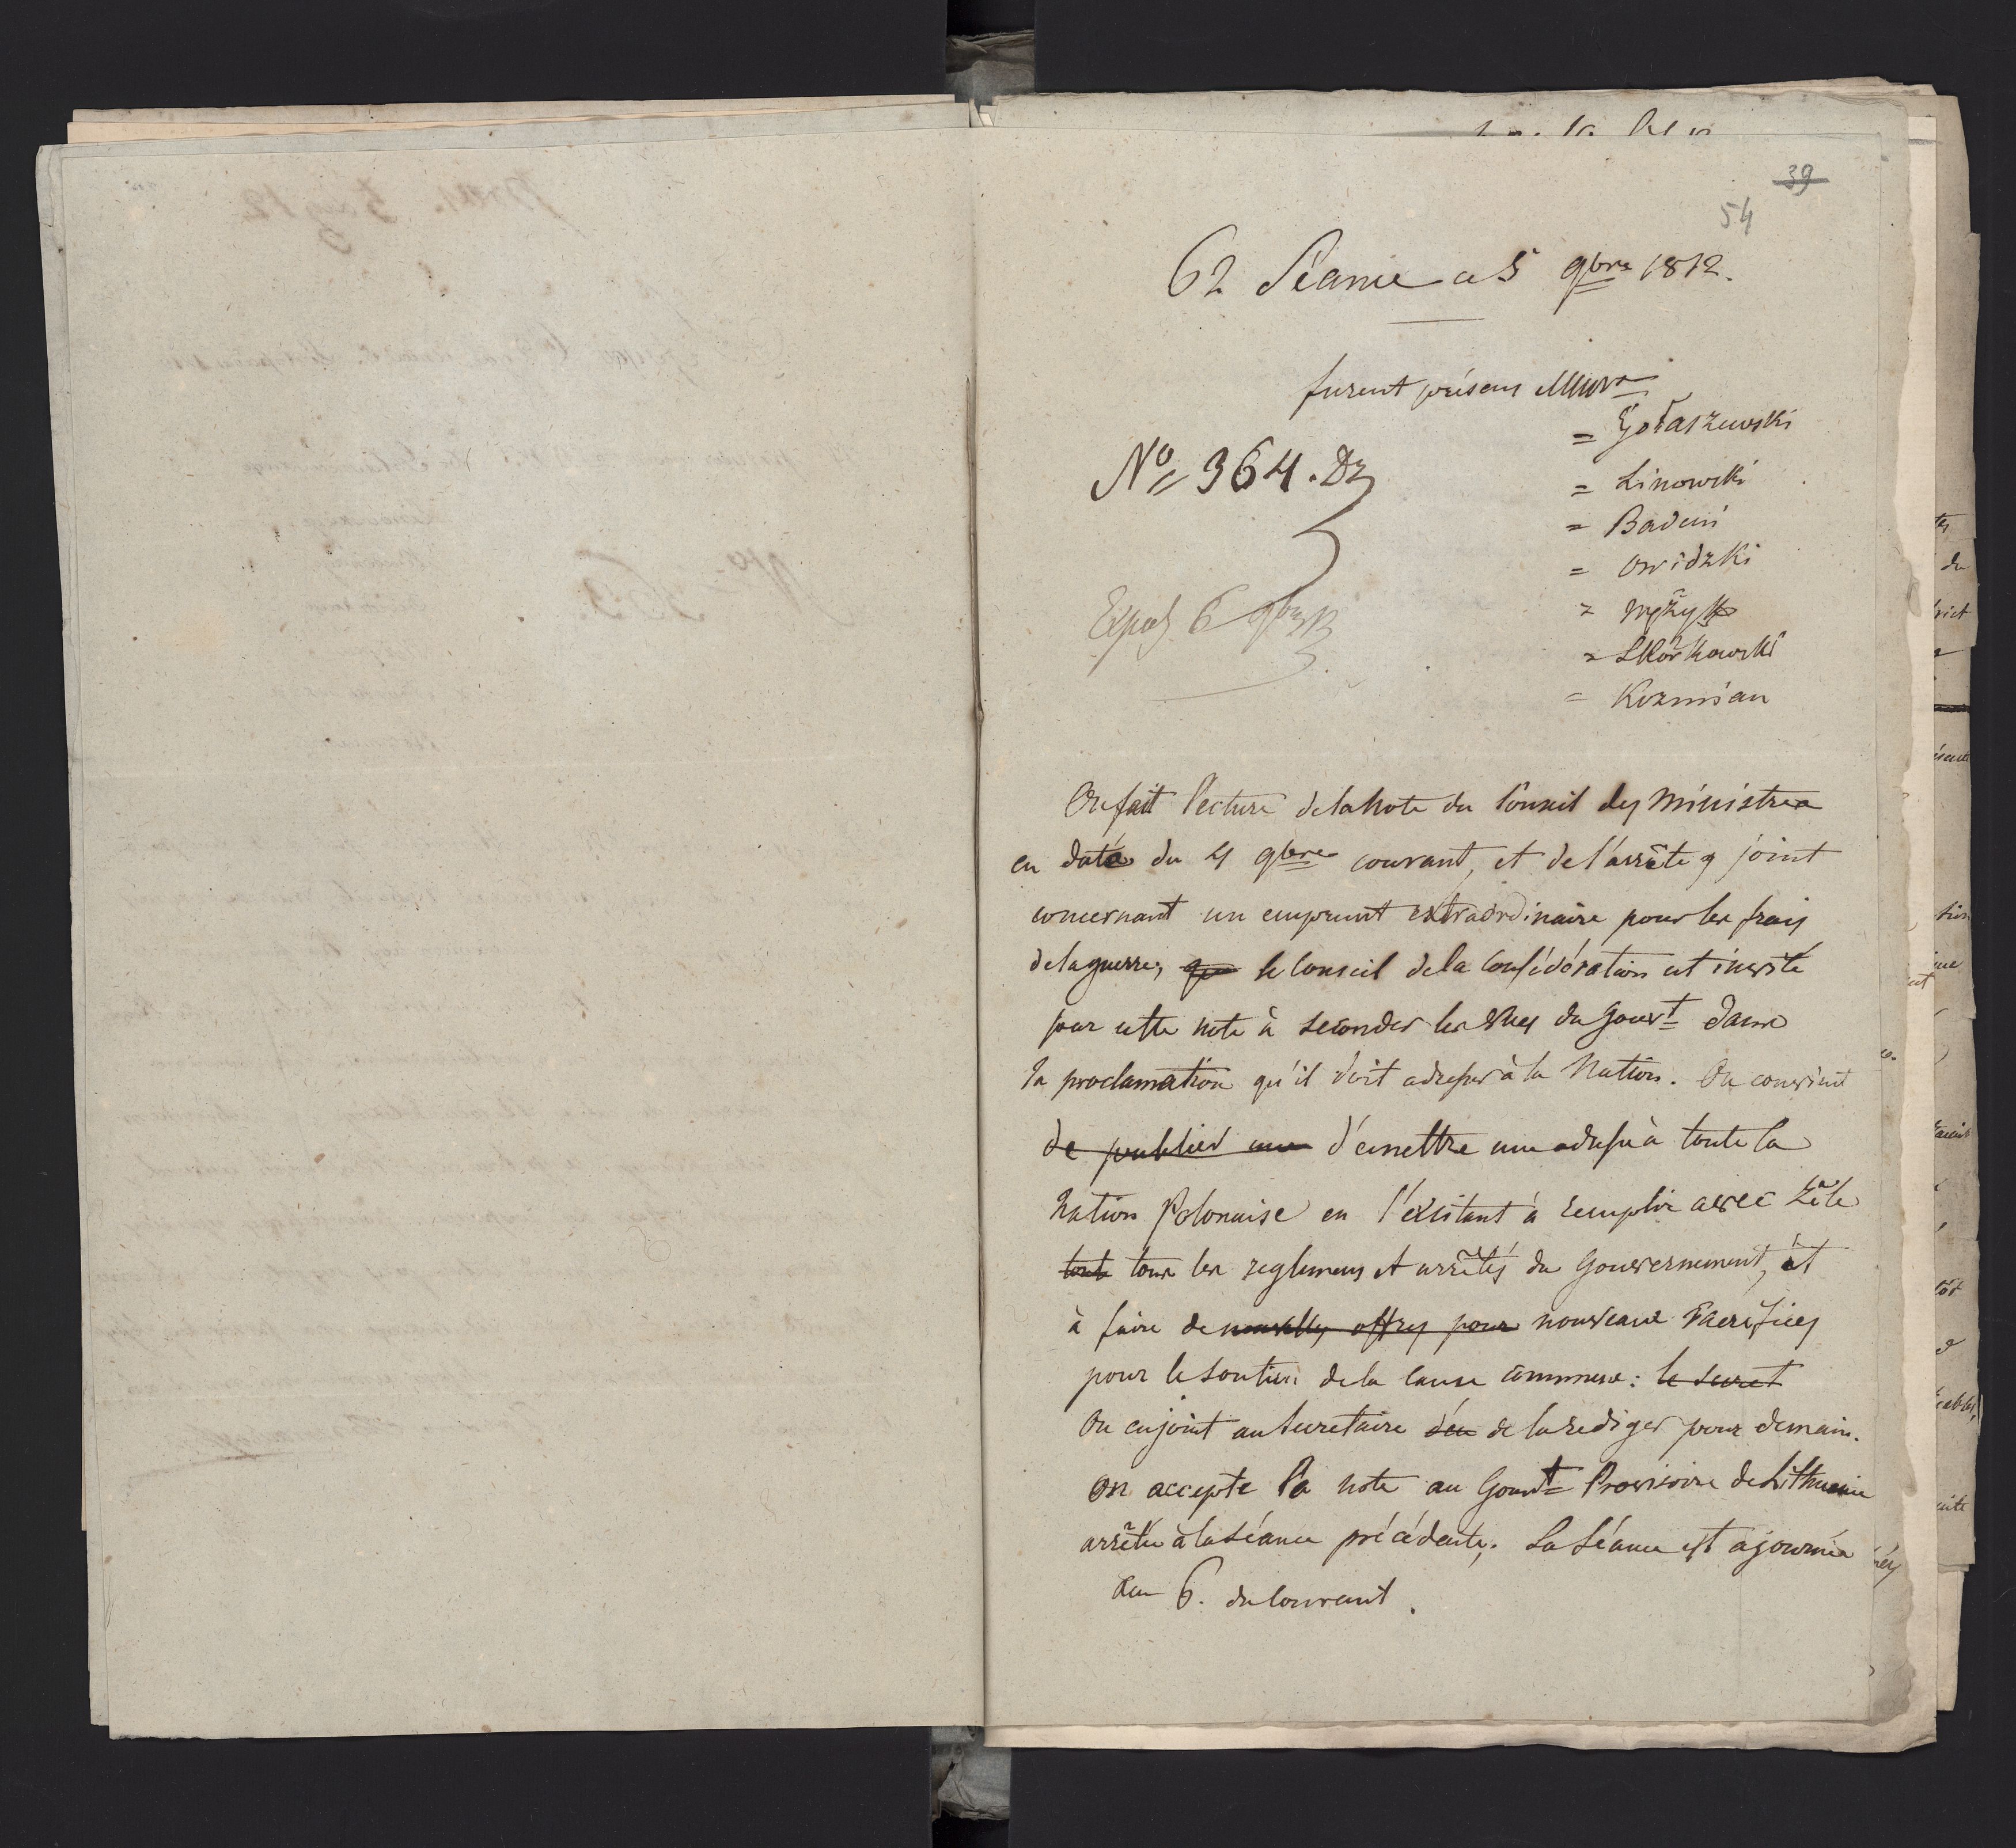 39
54
62 Séance ce 5 9bre 1812.
furent présens MMrs
= Gołaszewski
No 364. Dz
= Linowski
= Badeni
= Owidzki
= Wężyk
= Skórkowski
= Kozmian
Exped 6 9br
On fait lecture de la Note du Conseil des Ministres
en date du 4 9bre courant, et de l'arrêté y joint
concernant un emprunt extraordinaire pour les frais
de la guerre, que le Conseil de la Confédération est invité
par cette note à seconder les vues du Gouvt dans
la proclamation qu'il doit adresser à la Nation. On convient
de publier une d'émettre une adresse à toute la
Nation Polonaise en l'éxcitant à remplir avec zêle
tout tous les reglemens et arrêtés du Gouvernement, et
à faire de nouvelles offres pour nouveaux sacrifices
pour le soutien de la cause commune: le secret
On enjoint au Secretaire d'en de la rediger pour demain.
On accepte la note au Gouvt Provisoire de Lithuanie
arrêtée à la séance précédente. La Séance est ajournée
au 6. du courant.